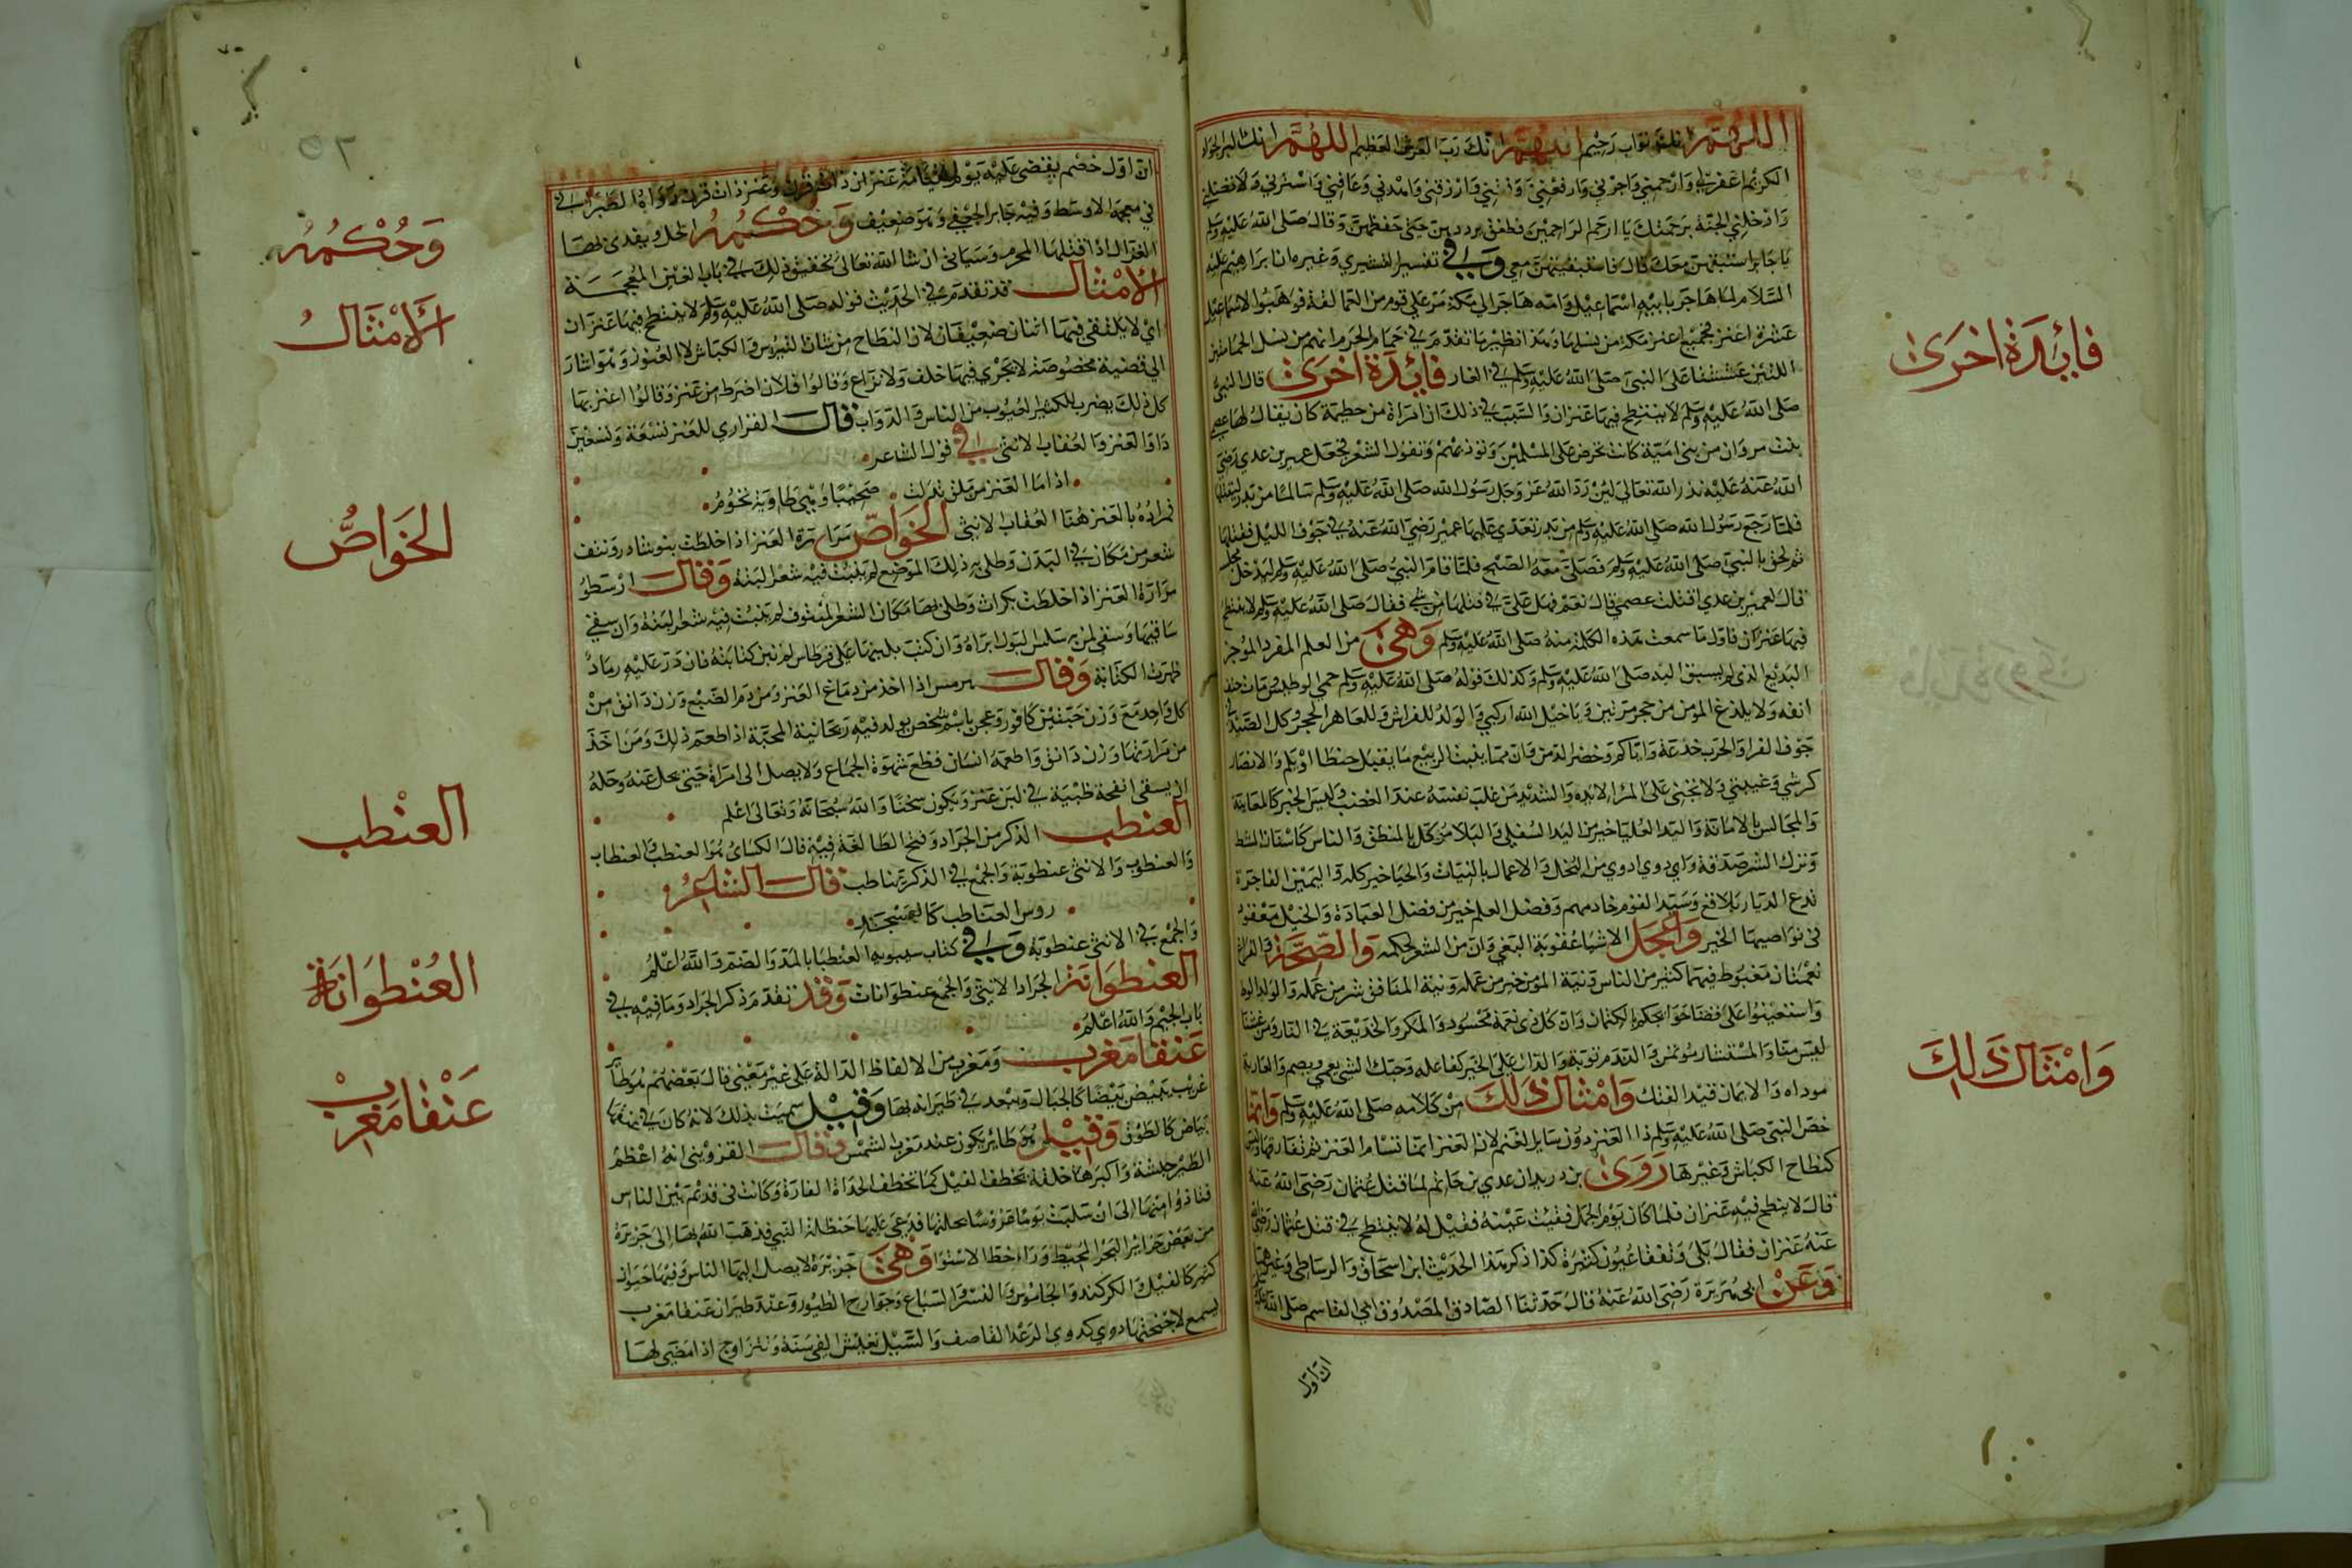 اللهم انك تواب رحيم اللهم انك رب العرش العظيم اللهم انك البر الجواد
الكريم اغفر لي وارحمني واجبرني وارفعني وارزقني واهدني وعافني واسترني ولا تضلني
وادخلني الجنة برحمتك يا ارحم الراحمين فطفق يرددهن حتى حفظهن وقال صلى الله عليه وسلم
يا جابر استبقهن معك قال فاستبقيتهن معي وفي تفسير القشيري وغيره ان ابراهيم عليه
السلام لما هاجر بابنه اسماعيل وامه هاجر الى مكة مر على قوم من العمالقة فوهبوا لاسماعيل
عشرة اعنز فجميع اعنز مكة من نسلها وهذا نظير ما تقدم في حمام الحرم انهم من نسل الحمامتين
اللتين عششتا على النبي صلى الله عليه وسلم في الغار فايدة اخرى قال النبي
صلى الله عليه وسلم لا ينتطح فيها عنزان والسبب في ذلك ان امراة من خطمة كان يقال لها عصما
بنت مروان من بني امية كانت تحرض على المسلمين وتوذيهم وتقول الشعر فجعل عمير بن عدي رضي
الله عنه عليه نذر الله تعالى لين رد الله عز وجل رسول الله صلى الله عليه وسلم سالما من بدر ليقتلنها
فلما رجع رسول الله صلى الله عليه وسلم من بدر تعدى عليها عمير رضي الله عنه في جوف الليل فقتلها
ثم لحق بالنبي صلى الله عليه وسلم فصلى معه الصبح فلما قام النبي صلى الله عليه وسلم ليدخل
قال لعمير بن عدي اقتلت عصما قال نعم فهل علي في قتلها من شي فقال صلى الله عليه وسلم لا ينتطح
فيها عنزان فاول ما سمعت هذه الكلمة منه صلى الله عليه وسلم وهي من العلم المفرد الموجز
البديع الذي لم يسبق اليه صلى الله عليه وسلم وكذلك قوله صلى الله عليه وسلم حمي الوطيس ومات حتف
انفه ولا يلدغ المومن من جحر مرتين ويا خيل الله اركبي والولد للفراش وللعاهر الحجر وكل الصيد في
جوف الفرا والحرب خدعة واياكم وخضرا الدمن وان مما ينبت الربيع ما يقتل حبطا او يلم والانصار
كرشي وعيبتي ولا يجني على المرا الا يده والشديد من غلب نفسه عند الغضب وليس الخبر كالمعاينة
والمجالس بالامانة واليد العليا خير من اليد السفلى والبلا موكل بالمنطق والناس كاسنان المشط
وترك الشر صدقة واي دوي ادوي من البخل والاعمال بالنيات والحيا خير كله واليمين الفاجرة
تدع الديار بلاقع وسيد القوم خادمهم وفضل العلم خير من فضل العبادة والخيل معقود
في نواصيها الخير واعجل الاشيا عقوبة البغي وان من الشعر لحكمه والصحة والفراغ
نعمتان مغبوط فيهما كثير من الناس ونية المومن خير من عمله ونية المنافق شر من عمله والولد الوط
واستعينوا على قضا حوايجكم بالكتمان وان كل ذي نعمة محسود والمكر والخديعة في النار ومن غشنا
ليس منا والمستشار موتمن والندم توبة والدال على الخير كفاعله وحبك الشي يعمي ويصم والعارية
موداه والايمان قيد الفتك وامثال ذلك من كلامه صلى الله عليه وسلم وانما
خص النبي صلى الله عليه وسلم ذا العنز دون ساير الغنم لان العنز انما تشام العنز ثم تفارقها وليس
كنطاح الكباش وغيرها روى بن دريد ان عدي بن حاتم لما قتل عثمان رضي الله عنه
قال لا ينطح فيه عنزان فلما كان يوم الجمل فقيت عينه فقيل له لا ينتطح في قتل عثمان رضي الله
عنه عنزان فقال بلى وتفقا عيون كثيرة كذا ذكر هذا الحديث ابن اسحاق والرساطي وغيرهما
وعن ابي هريرة رضي الله عنه قال حدثنا الصادق المصدوق ابي القاسم صلى الله عليه
ان اول
فايدة اخرى
وامثال ذلك
ان اول خصم يقضى عليه يوم القيامة عنزان ذات قرن وعنز ذات قرن رواه الطبراني
في معجمه الاوسط وفيه جابر الجعفي وهو ضعيف وحكمه الحل ويفدى بها
الغزال اذا قتلها المحرم وسياتي ان شا الله تعالى تحقيق ذلك في باب الغين المعجمة
الامثال قد تقدم في الحديث قوله صلى الله عليه وسلم لا ينتطح فيها عنزان
اي لا يلتقي فيهما اثنان ضعيفان لان النطاح من شان التيوس والكباش لا العنوز وهو اشار
الى قضية مخصوصة لا يجري فيها خلف ولا نزاع وقالوا فلان اضرط من عنز وقالوا اعنز بها
كل ذلك يضرب للكثير العيوب من الناس والدواب قال الفزاري للعنز تسعة وتسعين
دا والعنز والعقاب الانثى في قول الشاعر
اذا ما العنز من ملق تدلت ضحيا وهي طاوية تحوم
فمراده بالعنز هنا العقاب الانثى الخواص مرارة العنز اذا خلطت بنوشادر ونتف
شعر من مكان في البدن وطلي به ذلك الموضع لم ينبت فيه شعر البتة وقال ارسطو
مرارة العنز اذا خلطت بكراث وطلي بها مكان الشعر المنتوف لم ينبت فيه شعر البتة وان سقي
ساقيها وسقي لمن به سلس البول ابراه وان كتب بلبنها على قرطاس لم تبن كتابته فان ذر عليه رماد
ظهرت الكتابة وقال هرمس اذا اخذ من دماغ العنز ومن دم الضبع وزن دانق من
كل واحد مع وزن حبتين كافور وعجن باسم شخص يولد فيه روحانية المحبة اذا اطعم ذلك ومن اخذ
من مرارتها وزن دانق واطعمه انسان قطع شهوة الجماع ولا يصل الى امراة حتى يحل عنه وحله
ان يسقى انفحة ظبية في لبن عنز ويكون سخنا والله سبحانه وتعالى اعلم
العنطب الذكر من الجراد وفتح الطا لغة فيه قال الكساي هو العنطب والعنطاب
والعنطوب والانثى عنطوبة والجمع في الذكر عناطب قال الشاعر
روس العناطب كالعنجد
والجمع في الانثى عنطوبة وفي كتاب سيبويه العنطبا بالمد والضم والله اعلم
العنطوانة الجراد الانثى والجمع عنطوانات وقد تقدم ذكر الجراد وما فيه في
باب الجيم والله اعلم
عنقا مغرب ومغرب من الالفاظ الدالة على غير معنى قال بعضهم هو طاير
غريب يبيض بيضا كالجبال ويبعد في طيرانه بها وقيل سميت بذلك لانه كان في عنقها
بياض كالطوق وقيل هو طاير يكون عند مغرب الشمس وقال القزويني انه اعظم
الطير جثة واكبرها خلقة تخطف الفيل كما تخطف الحداة الفارة وكانت في قديم بين الناس
فتاذوا منها الى ان سلبت يوما عروسا بحليها فدعى عليها حنظلة النبي فذهب الله بها الى جزيرة
من بعض جزاير البحر المحيط ورا خط الاستوا وهي جزيرة لا يصل اليها الناس وفيها حيوان
كثير كالفيل والكركند والجاموس والنسر والسباع وجوارح الطيور وعند طيران عنقا مغرب
يسمع لاجنحتها دوي كدوي الرعد القاصف والسيل تعيش الفي سنة وتتزاوج اذا مضى لها
وحكمه
الامثال
الخواص
العنطب
العنطوانة
عنقا مغرب